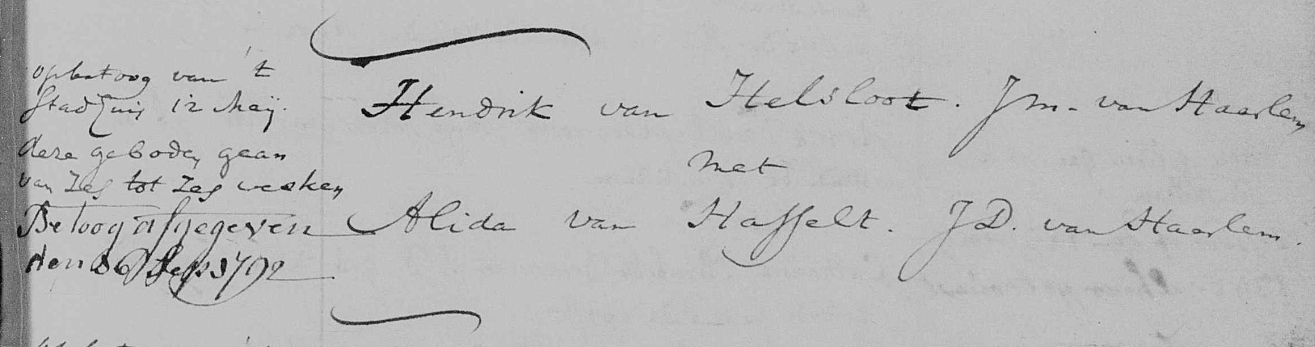 op betoog van 't
Stadhuis 12 Meij.
deze geboden gaan
van Zes tot Zes weeken
Betoog afgegeven
den 26 Sep 1792
Hendrik van Helsloot. Jm. van Haarlem
met
Alida van Hasselt. JD. van Haarlem.